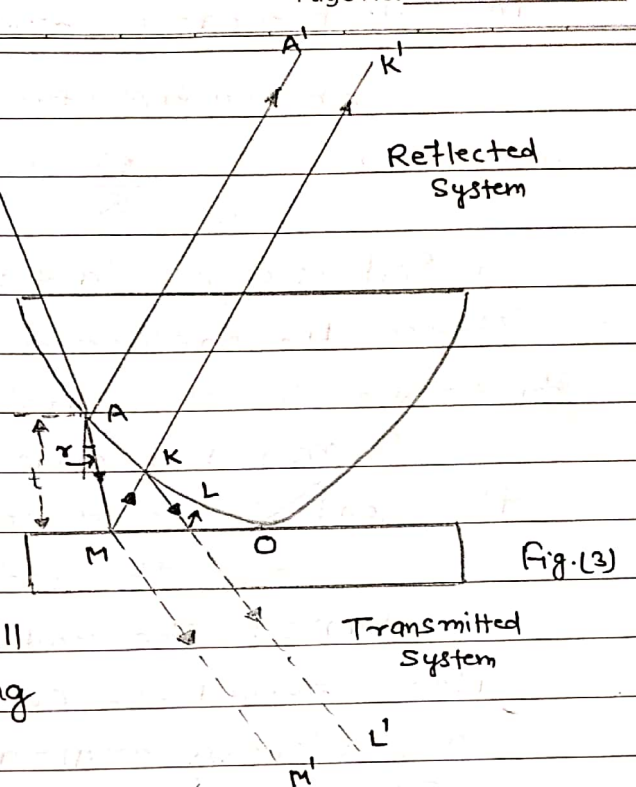 A'
K'
Reflected
System
A
r
K
t
L
M
O
Fig.(3)
Transmitted
System
L'
M'